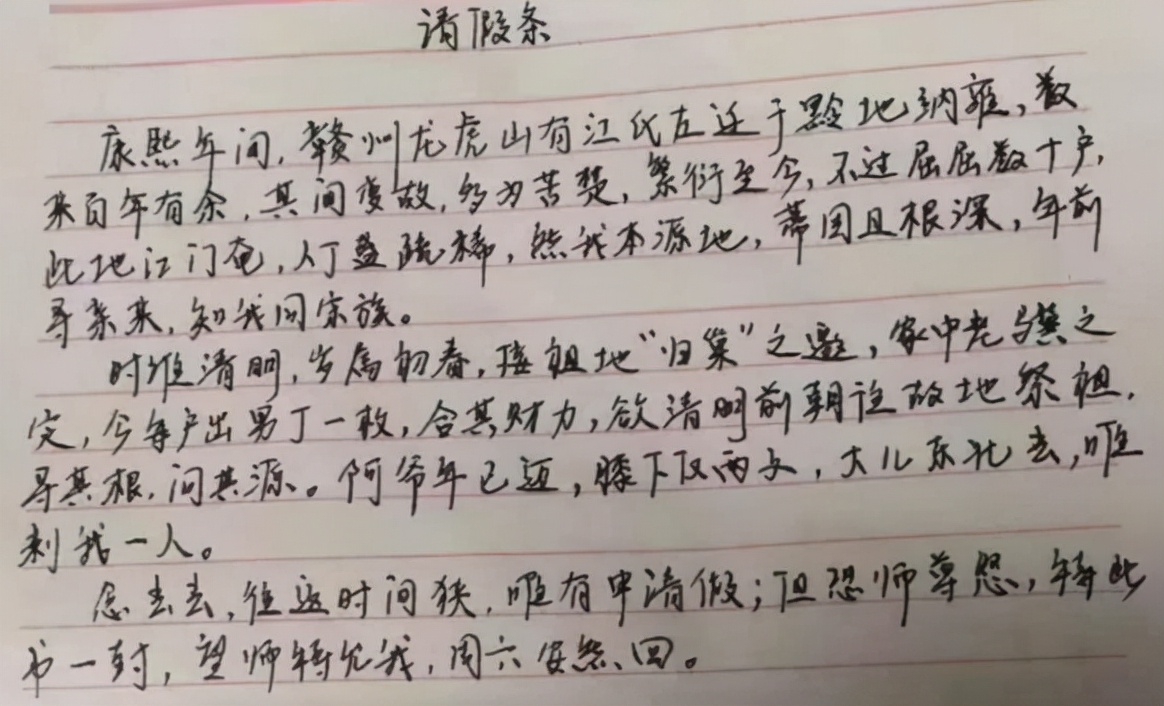 请假条
康熙年间,赣州龙虎山有江氏左迁于黔地纳雍,数
来百年有余,其间变故,多为苦楚,繁衍至今,不过屈屈数十户,
此地江门奄,人丁益疏稀,然我本源地,蒂固且根深,年前
寻亲来,知我同宗族。
时维清明,岁属初春,接祖地“归巢”之邀,家中老舆之
定,今每户出男丁一枚,合其财力,欲清明前朝往故地祭祖,
寻其根,问其源。阿爷年已迈,膝下仅两子,大儿东北去,唯
剩我一人。
念去去,往返时间狭,唯有申请假;但恐师尊怒,特此
书一封,望师特允我,周六安然回。